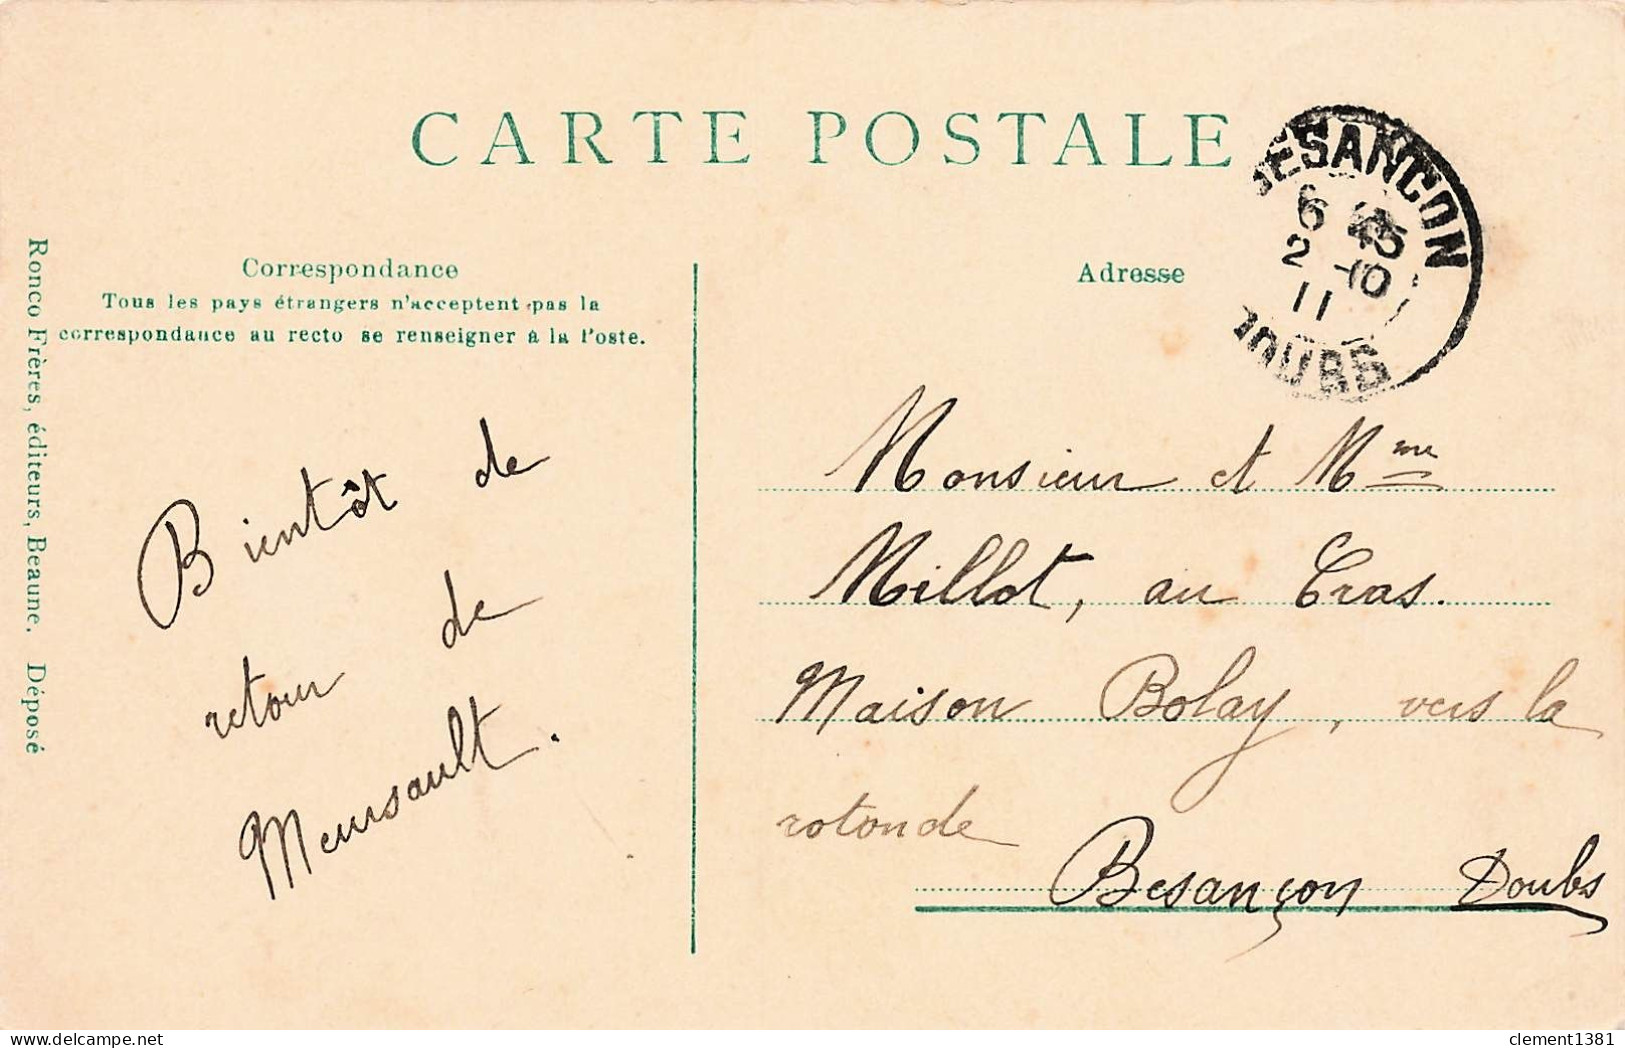 CARTE POSTALE
BESANCON
6 45
2 -10
11
DOUBS
Correspondance
Tous les pays étrangers n'acceptent pas la
correspondance au recto se renseigner à la Poste.
Adresse
Ronco Frères, éditeurs, Beaune. Déposé
Bientôt de
retour de
Meursault.
Monsieur et Mme
Millot, au Cras.
Maison Bolay, vers la
rotonde
Besançon Doubs
clement1381